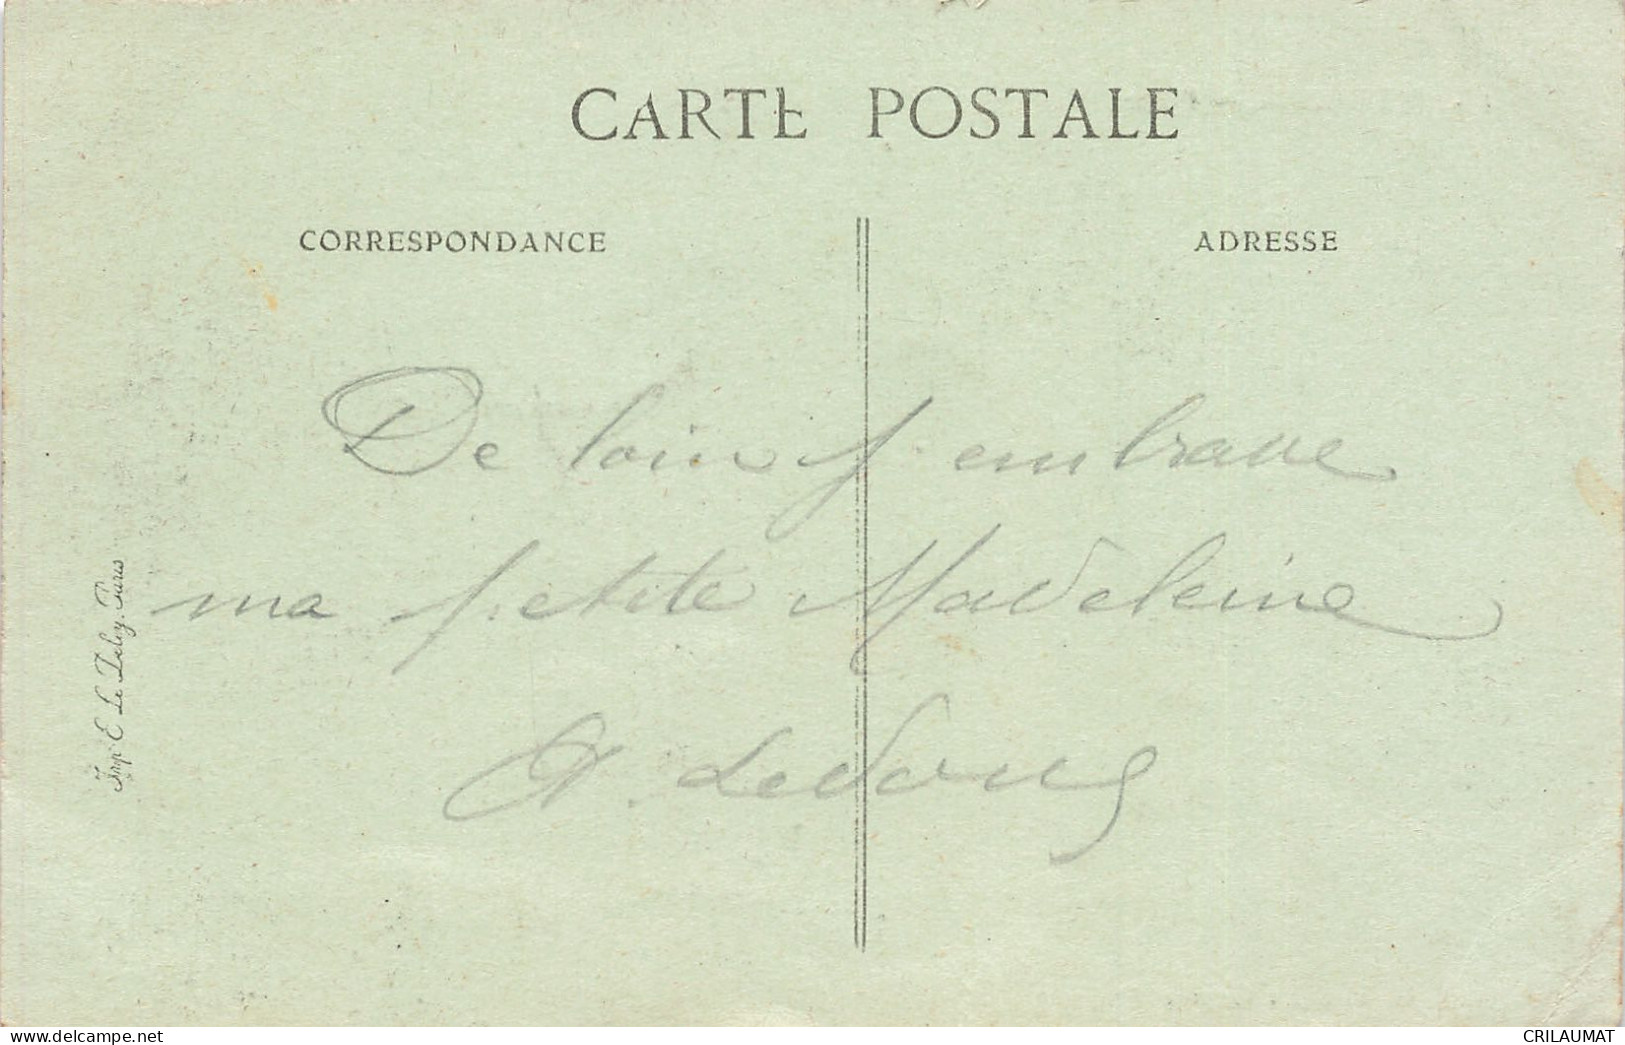 CARTE POSTALE
CORRESPONDANCE
ADRESSE
De loin j'embrasse
ma petite Madeleine
Imp. E. Le Deley, Paris
www.delcampe.net
CRILAUMAT